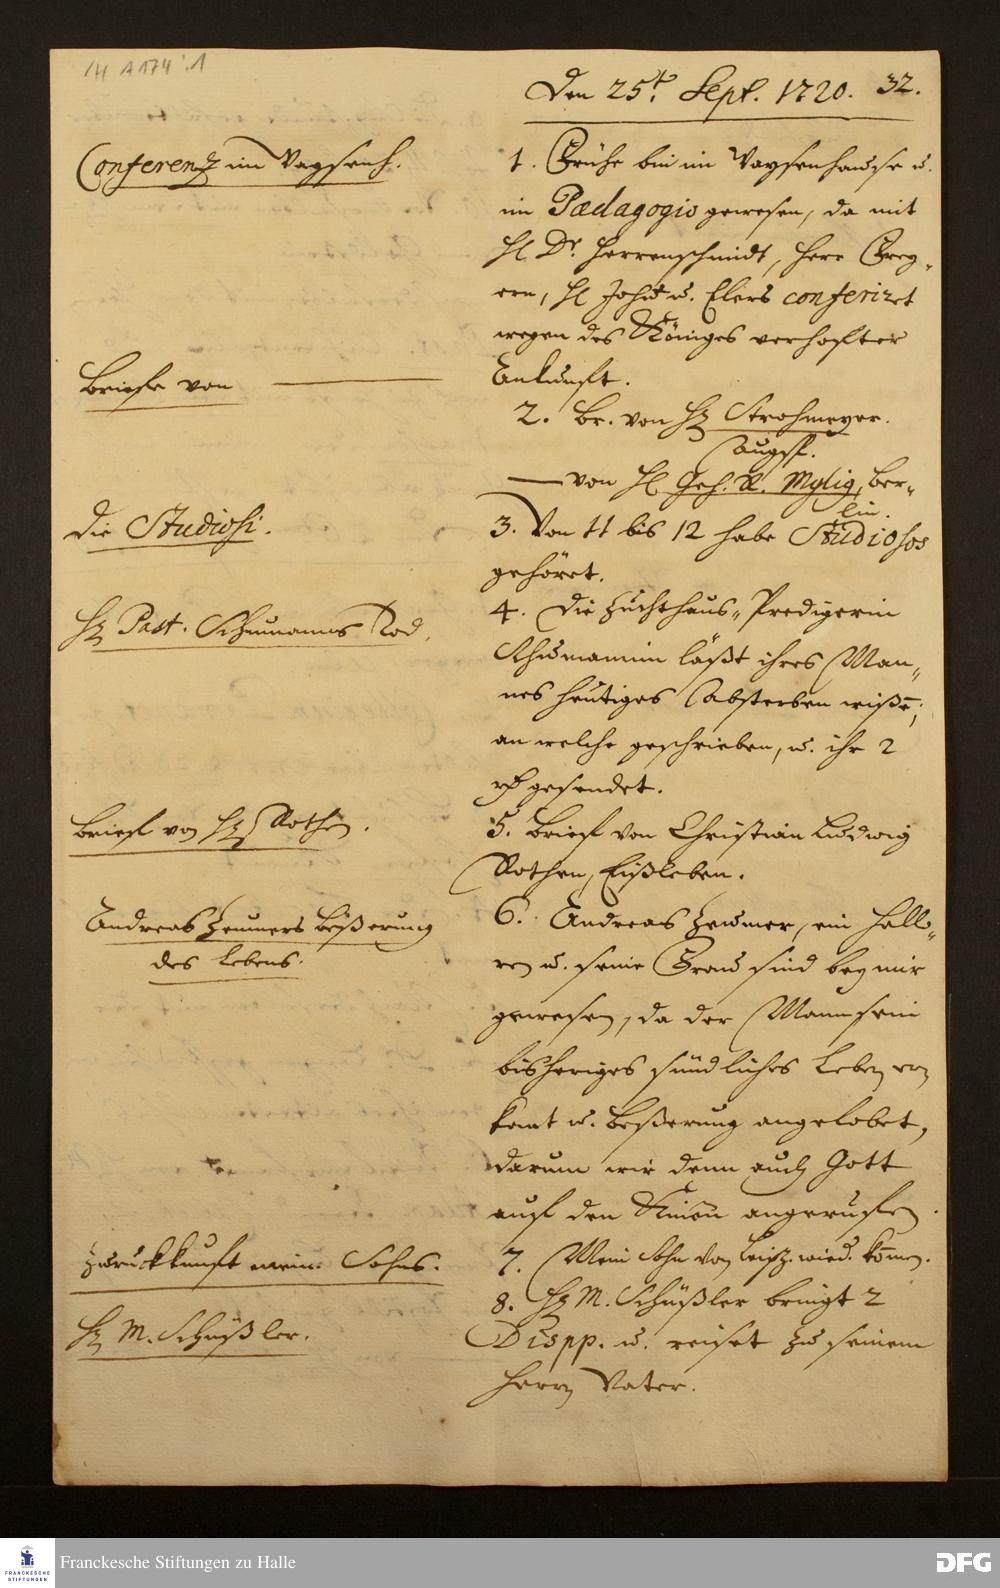 H A 174 : 1
Den 25t. Sept. 1720. 32.
Conferentz im Waysenh.
1. Frühe bin im Waysenhause u.
im Pædagogio gewesen, da mit
H. Dr. Herrenschmidt, Herr Frey-
ern, H. u. Elers conferiret
wegen des Königes verhoffter
Ankunfft.
Briefe von
2. Br. von H. Strohmeyer.
Augsp.
— von H. Geh. R. Mylig, Ber-
lin.
Die Studiosi.
3. Von 11 bis 12 habe Studiosos
gehöret.
H. Past. Schumanns Tod.
4. Die Zuchthaus-Predigerin
Schumannin läßt ihres Man-
nes heutiges Absterben wißen;
an welche geschrieben, u. ihr 2
rh gesendet.
Brief von H. Rothen.
5. Brief von Christian Ludwig
Rothen, Eißleben.
Andreas Zeumers Beßerung
des Lebens.
6. Andreas Zeumer, ein Hallo-
ren u. seine Frau sind bey mir
gewesen, da der Mann sein
bisheriges sündliches Leben er-
kant u. Beßerung angelobet,
darum wir denn auch Gott
auf den Knien angeruffen.
Zurückkunfft mein. Sohns.
7. Mein Sohn von Leipz. wied. kommen.
H. M. Schüßler.
8. H. M. Schüßler bringt 2
Dispp. u. reiset zu seinem
Herrn Vater.
FRANCKESCHE
STIFTUNGEN
Franckesche Stiftungen zu Halle
DFG